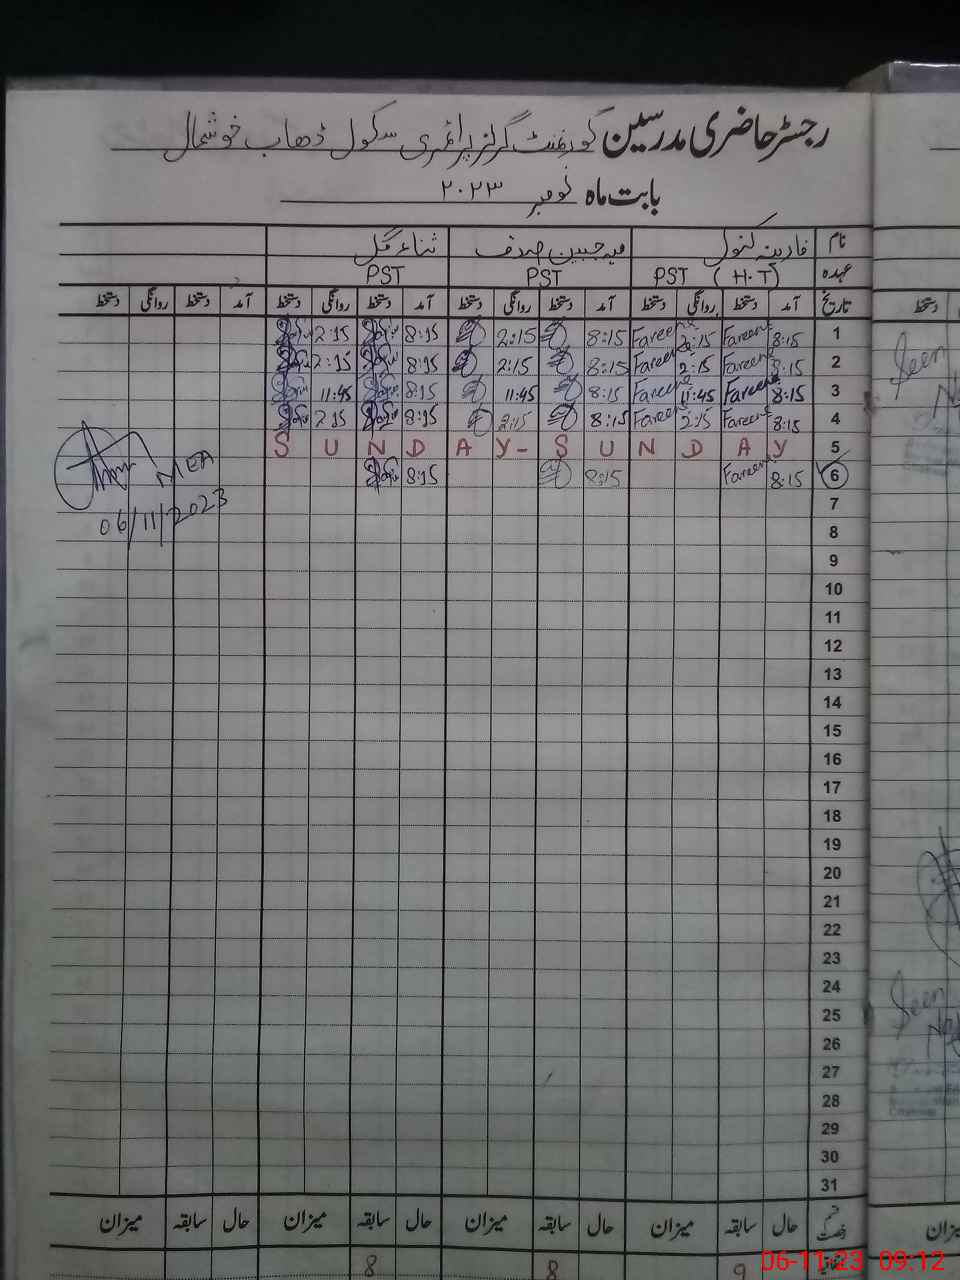 رجسٹر حاضری مدرسین گورنمنٹ گرلز پرائمری سکول ڈھاب خوشحال
بابت ماہ نومبر ۲۰۲۳
نام فارینہ کنول مہ جبین صدف ثناء گل
عہدہ PST (H.T) PST PST
تاریخ آمد دستخط روانگی دستخط آمد دستخط روانگی دستخط آمد دستخط روانگی دستخط آمد دستخط روانگی دستخط
1 8:15 Fareena 2:15 Fareena 8:15 2:15 8:15 2:15
2 8:15 Fareena 2:15 Fareena 8:15 2:15 8:15 2:15
3 8:15 Fareena 11:45 Fareena 8:15 11:45 8:15 11:45
4 8:15 Fareena 2:15 Fareena 8:15 2:15 8:15 2:15
5 SUNDAY-SUNDAY
6 8:15 Fareena 8:15 8:15
MEA
06/11/2023
7
8
9
10
11
12
13
14
15
16
17
18
19
20
21
22
23
24
25
26
27
28
29
30
31
حال سابقہ میزان حال سابقہ میزان حال سابقہ میزان حال سابقہ میزان
9 8 8
دستخط
Seen
Seen
میزان
06-11-23 09:12